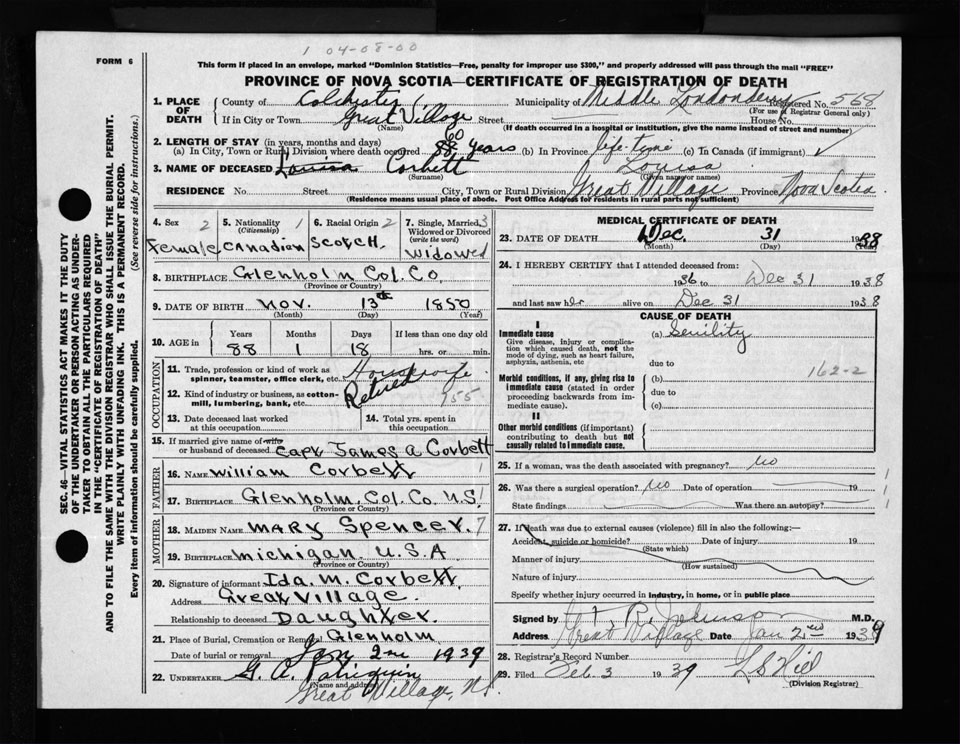 1 04-08-00
FORM 6
This form if placed in an envelope, marked "Dominion Statistics—Free, penalty for improper use $300," and properly addressed will pass through the mail "FREE"
PROVINCE OF NOVA SCOTIA—CERTIFICATE OF REGISTRATION OF DEATH
SEC. 46—VITAL STATISTICS ACT MAKES IT THE DUTY
OF THE UNDERTAKER OR PERSON ACTING AS UNDER-
TAKER TO OBTAIN ALL THE PARTICULARS REQUIRED
IN THE "CERTIFICATE OF REGISTRATION OF DEATH"
AND TO FILE THE SAME WITH THE DIVISION REGISTRAR WHO SHALL ISSUE THE BURIAL PERMIT.
WRITE PLAINLY WITH UNFADING INK. THIS IS A PERMANENT RECORD.
Every item of information should be carefully supplied. (See reverse side for instructions.)
1. PLACE OF DEATH County of Colchester Municipality of Middle Londonderry Registered No. 568
(For use of Registrar General only)
If in City or Town Great Village Street House No.
(Name) (If death occurred in a hospital or institution, give the name instead of street and number)
2. LENGTH OF STAY (in years, months and days) 60
(a) In City, Town or Rural Division where death occurred 88 years (b) In Province life-time (c) In Canada (if immigrant)
3. NAME OF DECEASED Louisa Corbett Louisa
(Surname) (Given name or names)
RESIDENCE No. Street City, Town or Rural Division Great Village Province Nova Scotia
(Residence means usual place of abode. Post Office Address for residents in rural parts not sufficient)
4. Sex 2 5. Nationality 1 6. Racial Origin 2 7. Single, Married, 3
(Citizenship) Widowed or Divorced
(write the word)
Female Canadian Scotch Widowed
8. BIRTHPLACE Glenholm Col. Co
(Province or Country)
9. DATE OF BIRTH Nov. 13th 1850
(Month) (Day) (Year)
10. AGE in Years Months Days If less than one day old
88 1 18 hrs. or min.
OCCUPATION
11. Trade, profession or kind of work as
spinner, teamster, office clerk, etc. Housewife
12. Kind of industry or business, as cotton-
mill, lumbering, bank, etc. Retired 955
13. Date deceased last worked
at this occupation
14. Total yrs. spent in
this occupation
15. If married give name of wife
or husband of deceased Capt James A Corbett
FATHER
16. NAME William Corbett 1
17. BIRTHPLACE Glenholm, Col. Co. N.S. 1
(Province or Country)
MOTHER
18. MAIDEN NAME Mary Spencer. 7
19. BIRTHPLACE Michigan. U.S.A
(Province or Country)
20. Signature of informant Ida. M. Corbett.
Address Great Village.
Relationship to deceased Daughter.
21. Place of Burial, Cremation or Removal Glenholm
Date of burial or removal Jan 2nd 1939
22. UNDERTAKER
(Name and address)
Great Village, NS
MEDICAL CERTIFICATE OF DEATH
23. DATE OF DEATH Dec. 31 1938
(Month) (Day)
24. I HEREBY CERTIFY that I attended deceased from:
1936 to Dec 31 1938
and last saw her alive on Dec 31 1938
CAUSE OF DEATH
I
Immediate cause
Give disease, injury or complica-
tion which caused death, not the
mode of dying, such as heart failure,
asphyxia, asthenia, etc
(a) Senility
due to
162-2
Morbid conditions, if any, giving rise to
immediate cause (stated in order
proceeding backwards from im-
mediate cause).
(b)
due to
(c)
II
Other morbid conditions (if important)
contributing to death but not
causally related to immediate cause.
25. If a woman, was the death associated with pregnancy? No
26. Was there a surgical operation? No Date of operation 19
State findings Was there an autopsy?
27. If death was due to external causes (violence) fill in also the following:—
Accident, suicide or homicide? Date of injury 19
(State which)
Manner of injury
(How sustained)
Nature of injury
Specify whether injury occurred in industry, in home, or in public place
Signed by T R Johnson M.D.
Address Great Village Date Jan 2nd 1939
28. Registrar's Record Number
29. Filed Feb. 3 1939 L S Hill
(Division Registrar)